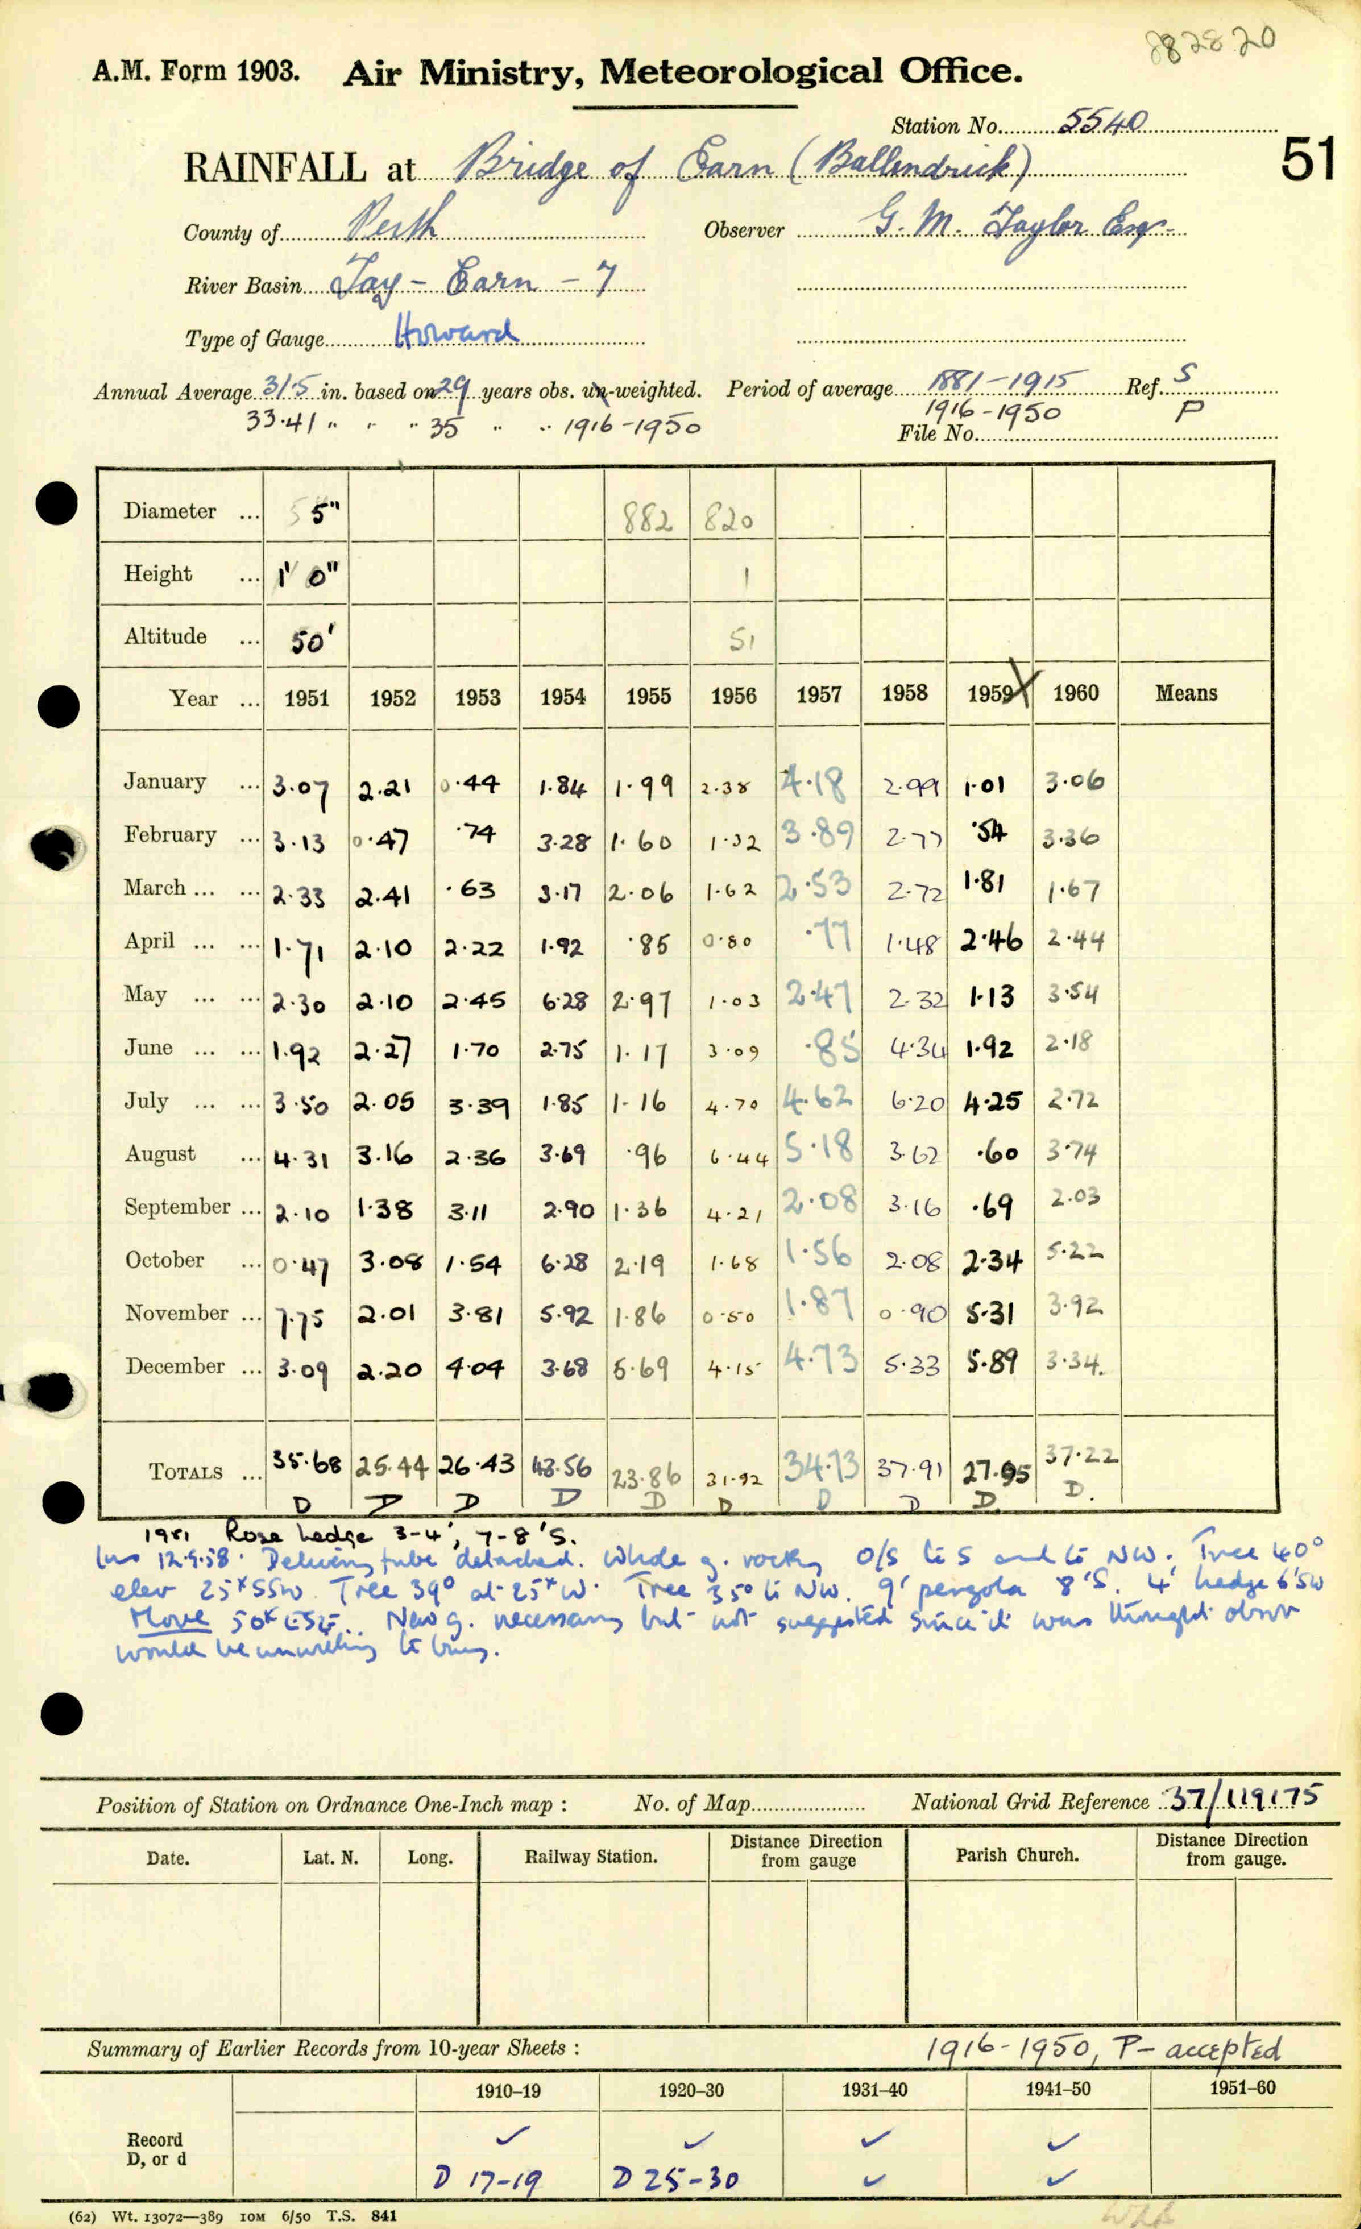 882820
A.M. Form 1903. Air Ministry, Meteorological Office.
Station No. 5540
51
RAINFALL at Bridge of Earn (Ballendrick)
County of Perth Observer G. M. Taylor Esq.
River Basin Tay - Earn - 7
Type of Gauge Howard
Annual Average 31.5 in. based on 29 years obs. un-weighted. Period of average 1881-1915 Ref. S
33.41 " " " 35 " " 1916-1950 1916-1950 P
File No.
Diameter ... 5" 882 820
Height ... 1' 0" 1
Altitude ... 50' 51
Year ... 1951 1952 1953 1954 1955 1956 1957 1958 1959 X 1960 Means
January ... 3.07 2.21 0.44 1.84 1.99 2.38 4.18 2.99 1.01 3.06
February ... 3.13 0.47 .74 3.28 1.60 1.32 3.89 2.77 .54 3.36
March ... ... 2.33 2.41 .63 3.17 2.06 1.62 2.53 2.72 1.81 1.67
April ... ... 1.71 2.10 2.22 1.92 .85 0.80 .77 1.48 2.46 2.44
May ... ... 2.30 2.10 2.45 6.28 2.97 1.03 2.47 2.32 1.13 3.54
June ... ... 1.92 2.27 1.70 2.75 1.17 3.09 .85 4.34 1.92 2.18
July ... ... 3.50 2.05 3.39 1.85 1.16 4.70 4.62 6.20 4.25 2.72
August ... 4.31 3.16 2.36 3.69 .96 6.44 5.18 3.62 .60 3.74
September ... 2.10 1.38 3.11 2.90 1.36 4.21 2.08 3.16 .69 2.03
October ... 0.47 3.08 1.54 6.28 2.19 1.68 1.56 2.08 2.34 5.22
November ... 7.75 2.01 3.81 5.92 1.86 0.50 1.87 0.90 5.31 3.92
December ... 3.09 2.20 4.04 3.68 5.69 4.15 4.73 5.33 5.89 3.34
TOTALS ... 35.68 25.44 26.43 43.56 23.86 31.92 34.73 37.91 27.95 37.22
D D D D D D D D D D.
1951 Rose hedge 3-4', 7-8'S.
Ins 12.9.58. Delivery tube detached. Whole g. rocky O/S to S and to NW. Tree 40°
elev 25x SSW. Tree 39° at 25x W. Tree 35° to NW. 9' pergola 8'S. 4' hedge 6'SW
Move 50x ESE. New g. necessary but not suggested since it was thought obsvr
would be unwilling to buy.
Position of Station on Ordnance One-Inch map : No. of Map National Grid Reference 37/119175
Date. Lat. N. Long. Railway Station. Distance Direction from gauge Parish Church. Distance Direction from gauge.
Summary of Earlier Records from 10-year Sheets : 1916-1950, P- accepted
1910–19 1920–30 1931–40 1941–50 1951–60
Record ✓ ✓ ✓ ✓
D, or d D 17-19 D 25-30 ✓ ✓
(62) Wt. 13072—389 10M 6/50 T.S. 841